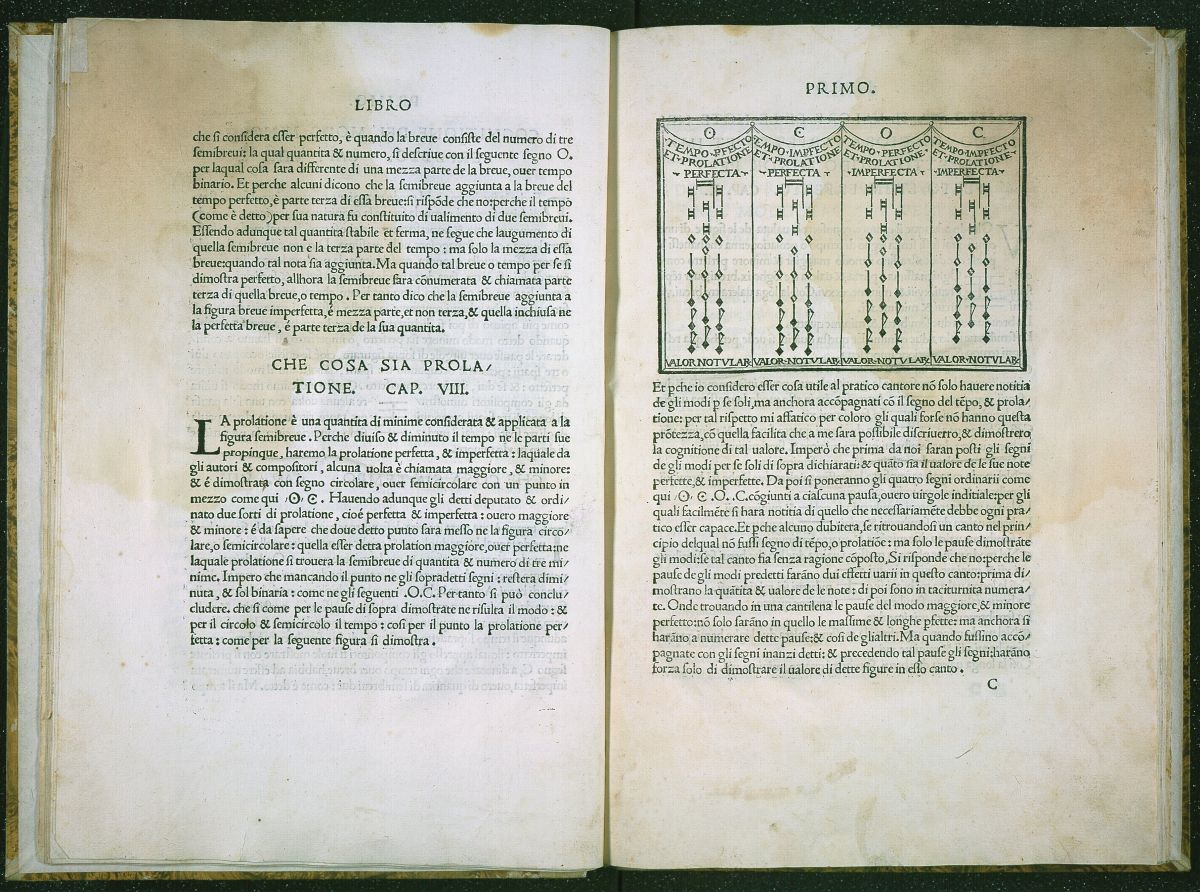 LIBRO
che si considera esser perfetto, è quando la breue consiste del numero di tre
semibreui: la qual quantita & numero, si descriue con il seguente segno O.
per laqual cosa sara differente di una mezza parte de la breue, ouer tempo
binario. Et perche alcuni dicono che la semibreue aggiunta a la breue del
tempo perfetto, è parte terza di essa breue: si rispōde che no: perche il tempo
(come è detto) per sua natura fu constituito di ualimento di due semibreui.
Essendo adunque tal quantita stabile et ferma, ne segue che laugumento di
quella semibreue non e la terza parte del tempo: ma solo la mezza di essa
breue: quando tal nota sia aggiunta. Ma quando tal breue o tempo per se si
dimostra perfetto, allhora la semibreue sara cōnumerata & chiamata parte
terza di quella breue, o tempo. Per tanto dico che la semibreue aggiunta a
la figura breue imperfetta, é mezza parte, et non terza, & quella inchiusa ne
la perfetta breue, é parte terza de la sua quantita.
CHE COSA SIA PROLA/
TIONE. CAP. VIII.
LA prolatione è una quantita di minime considerata & applicata a la
figura semibreue. Perche diuiso & diminuto il tempo ne le parti sue
propinque, haremo la prolatione perfetta, & imperfetta: laquale da
gli autori & compositori, alcuna uolta è chiamata maggiore, & minore:
& é dimostrata con segno circolare, ouer semicircolare con un punto in
mezzo come qui ⊙. C. Hauendo adunque gli detti deputato & ordi/
nato due sorti di prolatione, cioé perfetta & imperfetta: ouero maggiore
& minore: é da sapere che doue detto punto sara messo ne la figura circo/
lare, o semicircolare: quella esser detta prolation maggiore, ouer perfetta: ne
laquale prolatione si trouera la semibreue di quantita & numero di tre mi/
nime. Impero che mancando il punto ne gli sopradetti segni: restera dimi/
nuta, & sol binaria: come ne gli seguenti .O.C. Per tanto si può conclu/
cludere. che si come per le pause di sopra dimostrate ne risulta il modo: &
per il circolo & semicircolo il tempo: cosi per il punto la prolatione per/
fetta: come per la seguente figura si dimostra.
PRIMO.
⊙ C O C
TEMPO·PFECTO ET·PROLATIONE PERFECTA
TEMPO·IMPFECTO ET·PROLATIONE PERFECTA
TEMPO·PERFECTO ET·PROLATIONE IMPERFECTA
TEMPO·IMPFECTO ET·PROLATIONE IMPERFECTA
VALOR·NOTVLAR: VALOR·NOTVLAR: VALOR·NOTVLAR: VALOR·NOTVLAR:
Et pche io considero esser cosa utile al pratico cantore nō solo hauere notitia
de gli modi p se soli, ma anchora accōpagnati cō il segno del tēpo, & prola/
tione: per tal rispetto mi affatico per coloro gli quali forse nō hanno questa
prōtezza, cō quella facilita che a me sara possibile discriuerro, & dimostrero
la cognitione di tal ualore. Imperò che prima da noi saran posti gli segni
de gli modi per se soli di sopra dichiarati: & quāto sia il ualore de le sue note
perfette, & imperfette. Da poi si poneranno gli quatro segni ordinarii come
qui ⊙. C. O. C. cōgiunti a ciascuna pausa, ouero uirgole inditiale: per gli
quali facilmēte si hara notitia di quello che necessariamēte debbe ogni pra/
tico esser capace. Et pche alcuno dubitera, se ritrouandosi un canto nel prin/
cipio delqual nō fussi segno di tēpo, o prolatiōe: ma solo le pause dimostrāte
gli modi: se tal canto sia senza ragione cōposto, Si risponde che no: perche le
pause de gli modi predetti farāno dui effetti uarii in questo canto: prima di/
mostrano la quātita & ualore de le note: di poi sono in taciturnita numera/
te. Onde trouando in una cantilena le pause del modo maggiore, & minore
perfetto: nō solo sarāno in quello le massime & longhe pfette: ma anchora si
harāno a numerare dette pause: & cosi de glialtri. Ma quando fussino accō/
pagnate con gli segni inanzi detti: & precedendo tal pause gli segni: harāno
forza solo di dimostrare il ualore di dette figure in esso canto.
C